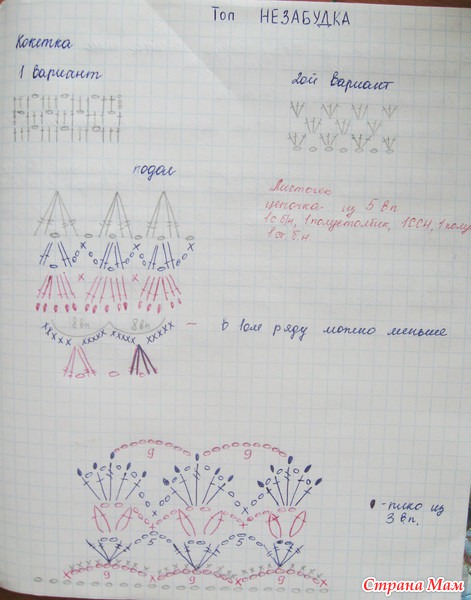 Топ НЕЗАБУДКА
Кокетка
1 вариант
2ой вариант
подол
Листочек
цепочка из 5 вп
1 сбн, 1 полустолбик, 1ССН, 1 полу
1 ст. б н.
8 вп
8 вп
— в 1ом ряду можно меньше
g
g
5
5
g
g
g
- пико из
3 вп.
Страна Мам